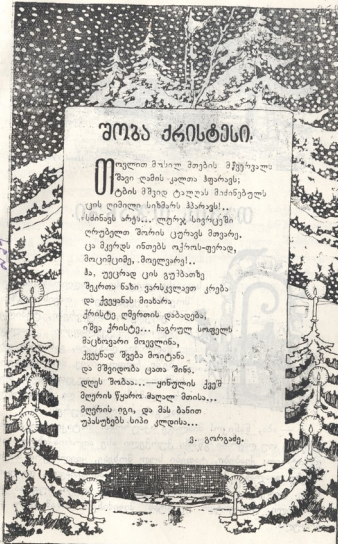 შობა ქრისტესი.
თოვლით მოსილ მთების მწვერვალს
შავი ღამის კალთა ჰფარავს;
ტბის მშვიდ ტალღას მიძინებულს
ცის ღიმილი სიზმარს ჰპარავს!..
სძინავს არეს... ლურჯ სივრცეში
ღრუბელთ შორის ცურავს მთვარე.
ცა მკერდს ინთებს ოქროს-ფერად,
მოციმციმე, მოელვარე!..
ჰა, უეცრად ცის გუმბათზე
შეკრთა ნაზი ვარსკვლავთ კრება
და ქვეყანას მიახარა
ქრისტე ღმერთის დაბადება;
იშვა ქრისტე... ჩაგრულ სოფელს
მაცხოვარი მოევლინა,
ქვეყნად შვება მოიტანა
და მშვიდობა ცათა შინა.
დღეს შობაა...—ყინულის ქვეშ
მღერის წყარო მაღალ მთისა...
მღერის იგი, და მას ბანით
უპასუხებს სიპი კლდისა...
ვ. გორგაძე.